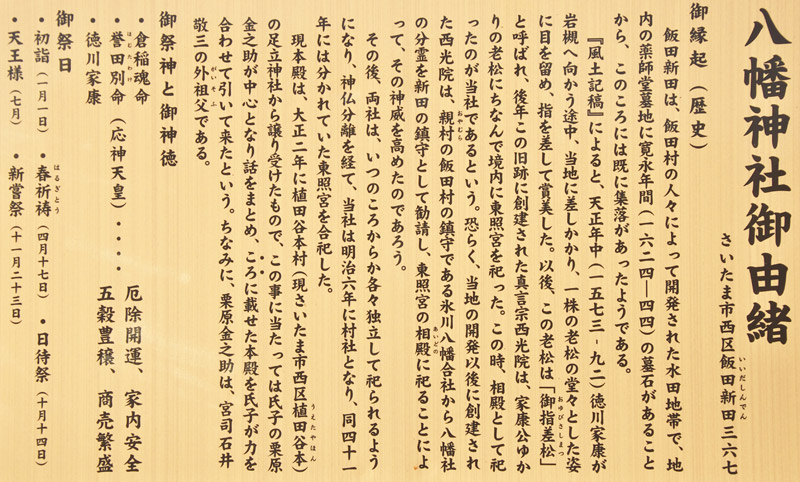 八幡神社御由緒
さいたま市西区飯田新田三六七
いいだしんでん
御縁起（歴史）
飯田新田は、飯田村の人々によって開発された水田地帯で、地
内の薬師堂墓地に寛永年間（一六二四―四四）の墓石があること
から、このころには既に集落があったようである。
『風土記稿』によると、天正年中（一五七三-九二）徳川家康が
岩槻へ向かう途中、当地に差しかかり、一株の老松の堂々とした姿
に目を留め、指を差して賞美した。以後、この老松は「御指差松」
おゆびさしまつ
と呼ばれ、後年この旧跡に創建された真言宗西光院は、家康公ゆか
りの老松にちなんで境内に東照宮を祀った。この時、相殿として祀
ったのが当社であるという。恐らく、当地の開発以後に創建され
た西光院は、親村の飯田村の鎮守である氷川八幡合社から八幡社
おやむら
の分霊を新田の鎮守として勧請し、東照宮の相殿に祀ることによ
あいどの
って、その神威を高めたのであろう。
その後、両社は、いつのころからか各々独立して祀られるよう
になり、神仏分離を経て、当社は明治六年に村社となり、同四十一
年には分かれていた東照宮を合祀した。
現本殿は、大正二年に植田谷本村（現さいたま市西区植田谷本）
うえたやほん
の足立神社から譲り受けたもので、この事に当たっては氏子の栗原
金之助が中心となり話をまとめ、ころに載せた本殿を氏子が力を
合わせて引いて来たという。ちなみに、栗原金之助は、宮司石井
敬三の外祖父である。
がいそふ
御祭神と御神徳
・倉稲魂命
・誉田別命（応神天皇）・・・・厄除開運、家内安全
ほむたわけ
・徳川家康　五穀豊穣、商売繁盛
御祭日
・初詣（一月一日）・春祈祷（四月十七日）・日待祭（十月十四日）
はるぎとう
・天王様（七月）・新嘗祭（十一月二十三日）